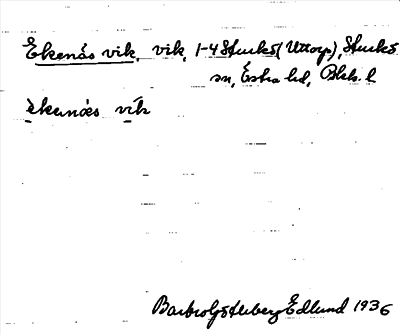 Ekenäs vik, vik, 1-4 Sturkö (Uttorp), Sturkö
sn, Östra hd, Blek. l
èkenæs vík
Barbro Edlund 1936